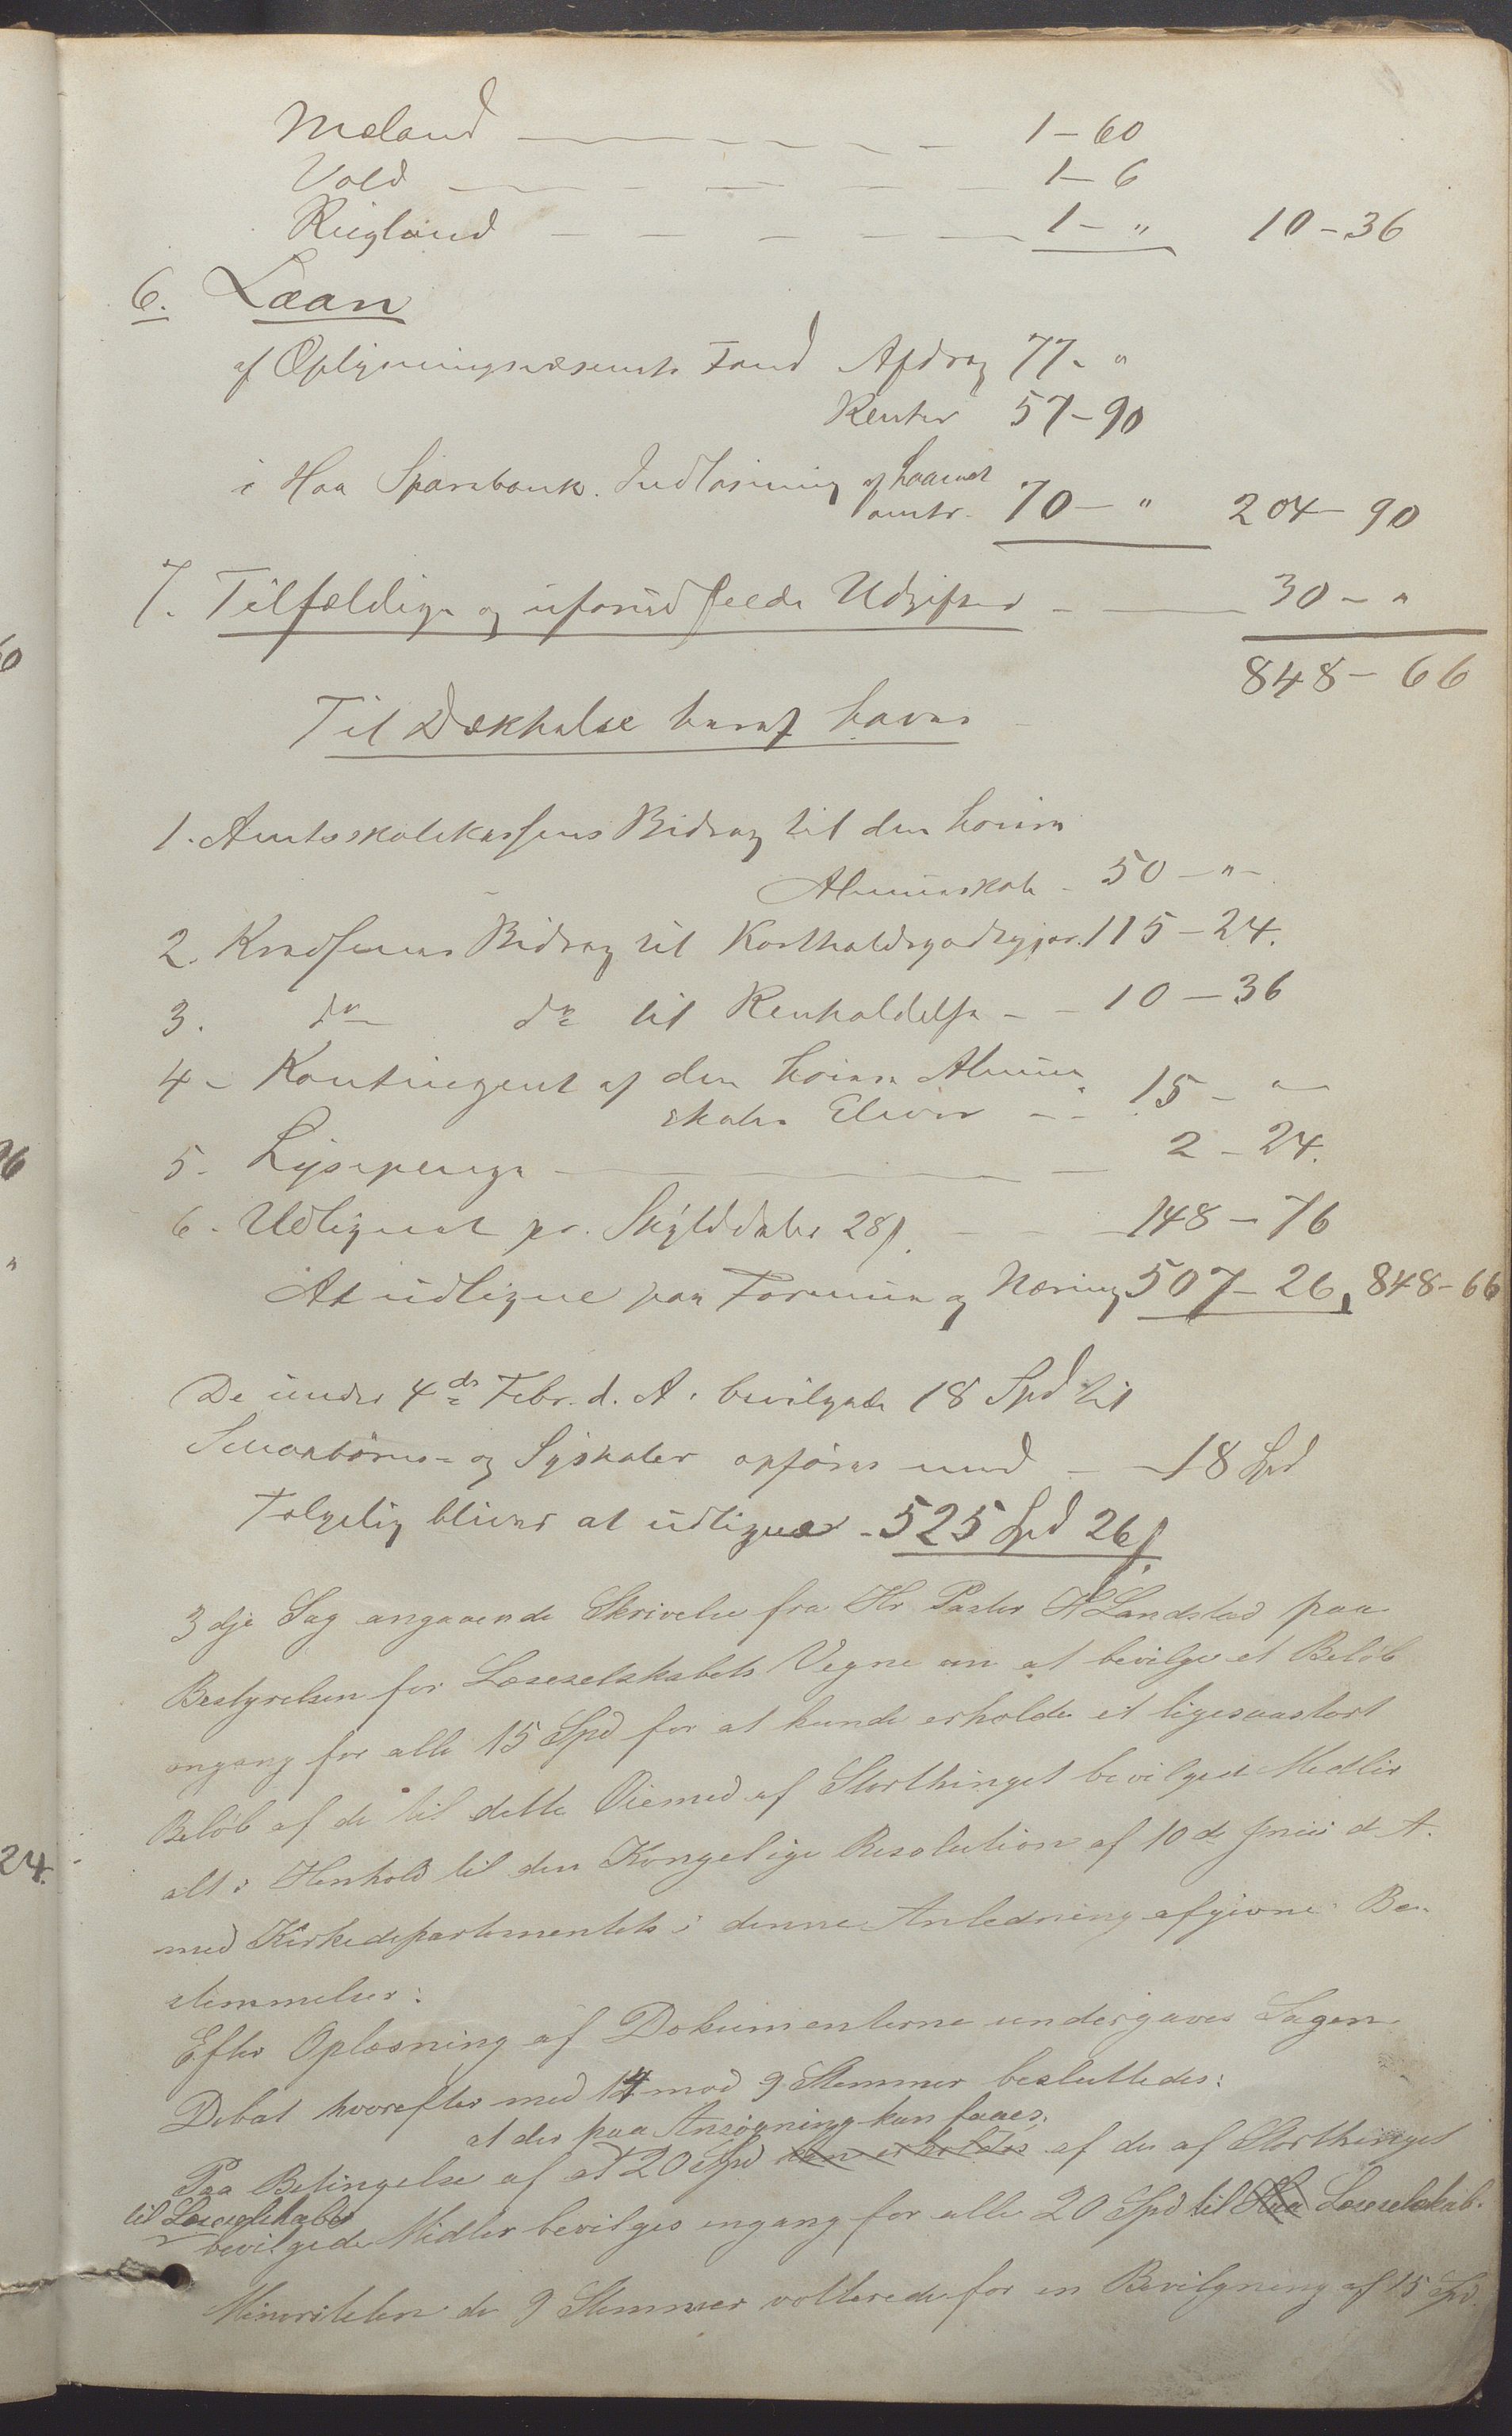 Mæland — 1 – 60
Vold — 1 – 6
Riegland — 1 – " 10 – 36
6. Laan
af Oplysningsvæsenets Fond Afdrag 77 – "
Renter 57 – 90
i Haa Sparebank. Indløsning af Laanet
70 – " 204 – 90
7. Tilfældige og uforudseede Udgifter — 30 – "
848 – 66
Til Dækkelse heraf haves
1. Amtsskolekassens Bidrag til den høiere
Almueskole – 50 – " –
2. Kredsernes Bidrag til Kostholdsgodtgjør. 115 – 24.
3. do do til Renholdelse – – 10 – 36
4 – Kontingent af den høiere Almue
skoles Elever – – 15 – "
5. Lysepenge — 2 – 24.
6. Udlignet pr. Skylddaler 28 s. – – 148 – 76
At udligne paa Formue og Næring 507 – 26, 848 – 66
De under 4de Febr. d. A. bevilgede 18 Spd til
Smaabørns- og Syskoler opføres med – – 18 Spd
Følgelig bliver at udligne – 525 Spd 26 s.
3dje Sag angaaende Skrivelse fra Hr Pastor H Landstad paa
Bestyrelsen for Læseselskabets Vegne om at bevilge et Beløb
engang for alle 15 Spd for at kunde erholde et ligesaastort
Beløb af de til dette Øiemed af Storthinget bevilgede Midler
alt i Henhold til den Kongelige Resolution af 10de Juni d. A.
med Kirkedepartementets i denne Anledning afgivne Be-
stemmelser:
Efter Oplæsning af Dokumenterne undergaves Sagen
Debat hvorefter med 14 mod 9 Stemmer besluttedes:
at der paa Ansøgning kan faaes
Paa Betingelse af at 20 Spd kan erholdes af de af Storthinget
til Læseselskaber
bevilgede Midler bevilges engang for alle 20 Spd til Haa Læseselskab.
Minoriteten de 9 Stemmer votterede for en Bevilgning af 15 Spd.
60
36
"
24.